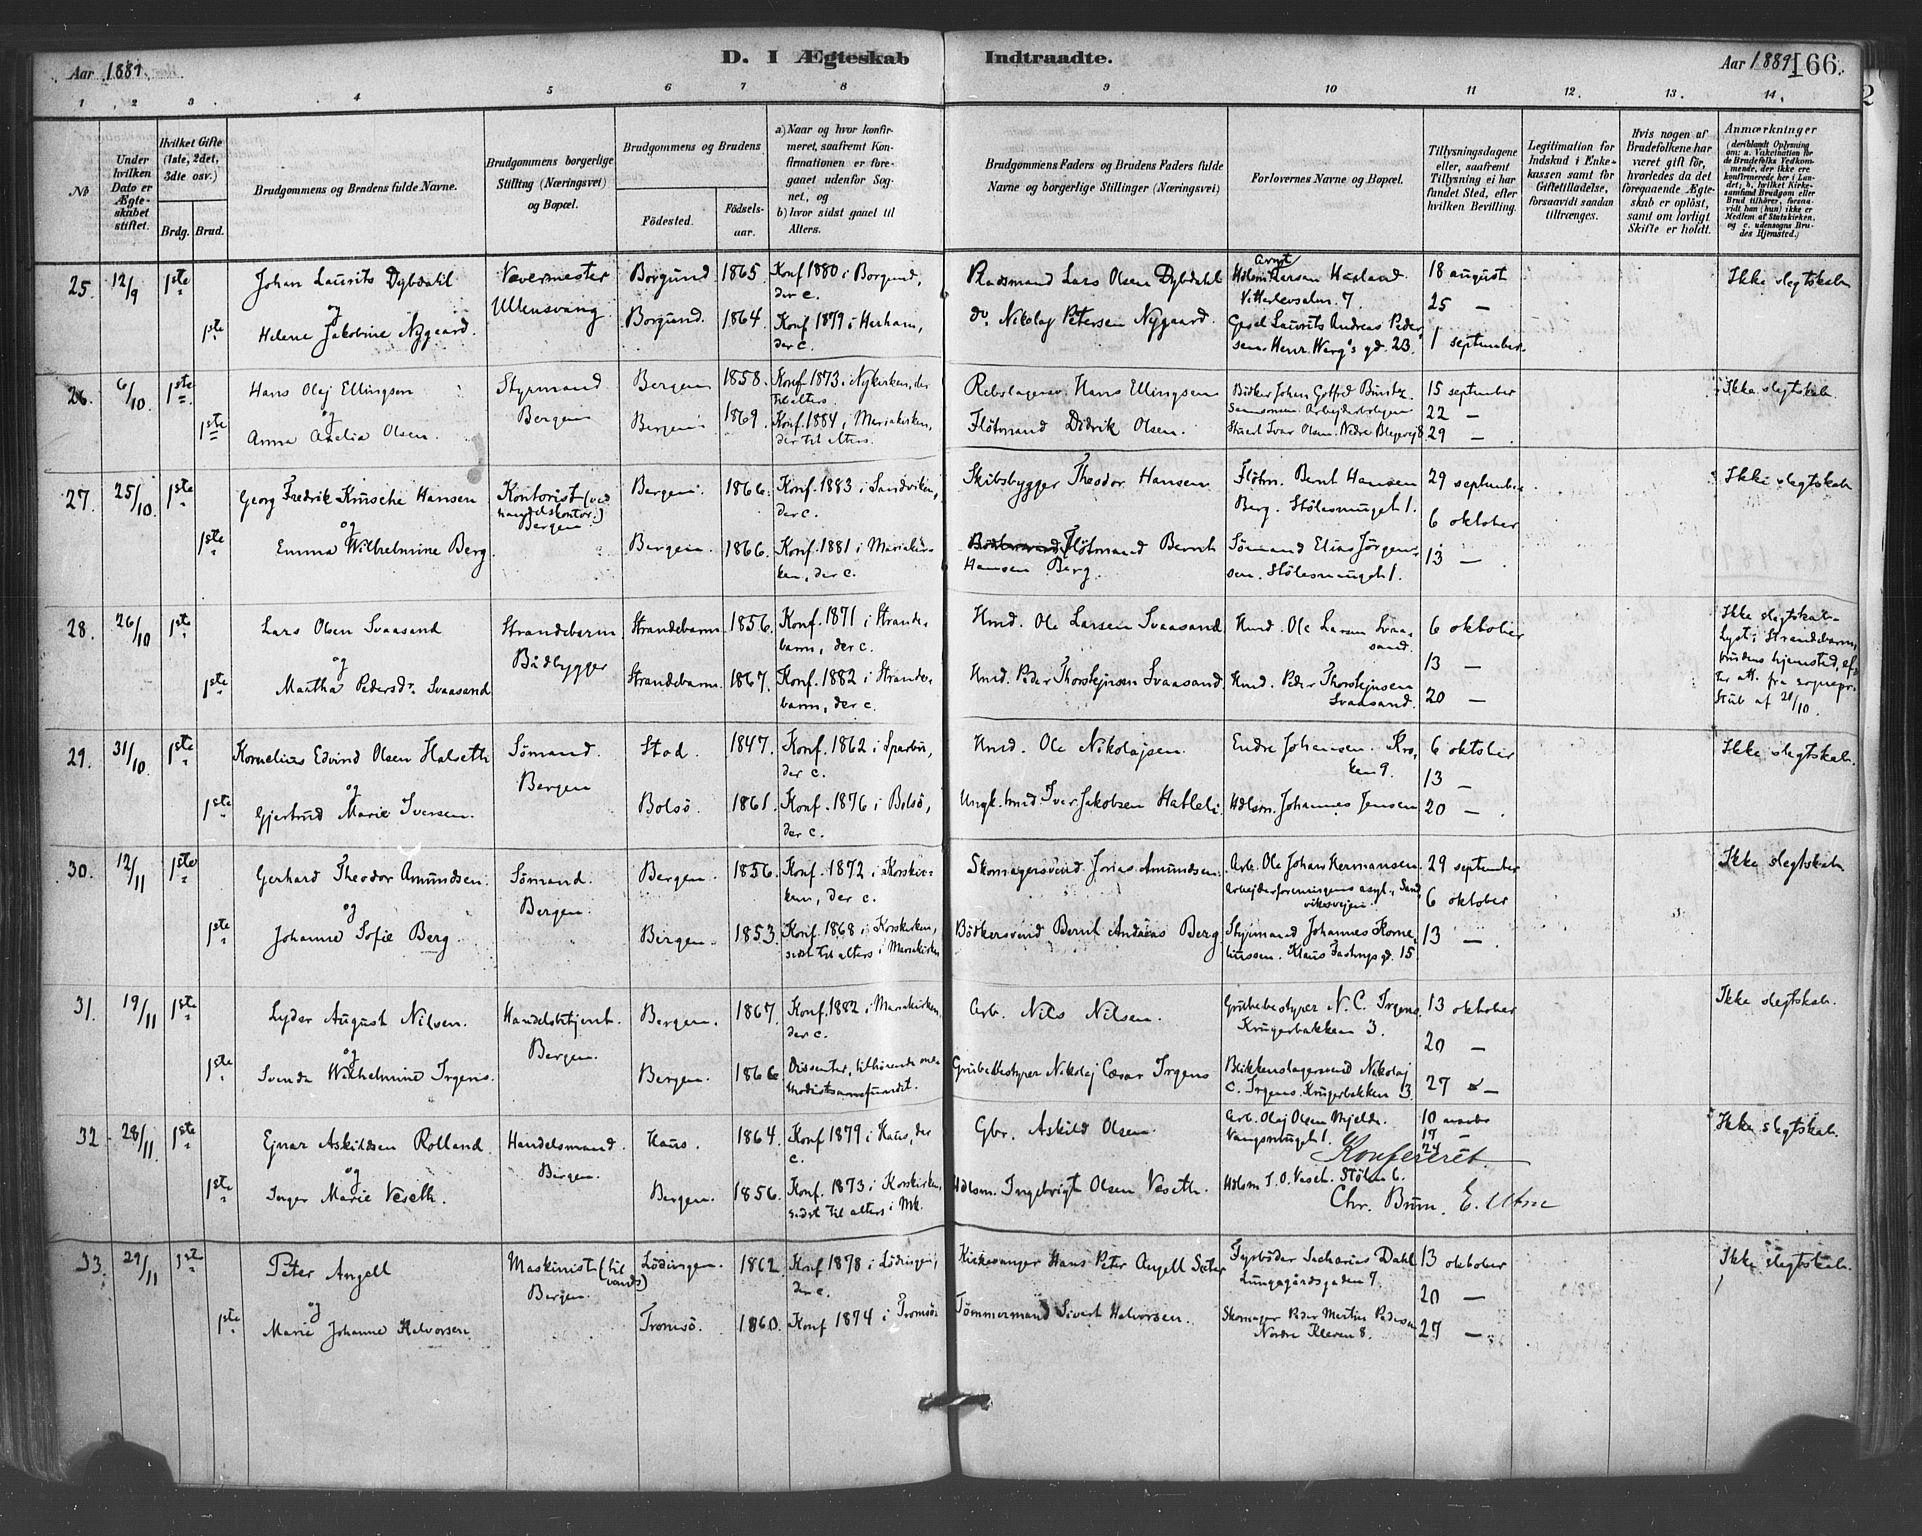 Aar 1889.
D. I Ægteskab Indtraadte.
Aar 1889 166.
1 2 3. 4 5 6 7 8 9 10 11 12. 13. 14.
No
Under hvilken Dato er Ægteskabet stiftet.
Hvilket Gifte (1ste, 2det, 3die osv.)
Brdg. Brud.
Brudgommens og Brudens fulde Navne.
Brudgommens borgerlige Stilling (Næringsvei) og Bopæl.
Brudgommens og Brudens
Fødested.
Fødselsaar.
a) Naar og hvor konfirmeret, saafremt Konfirmationen er foregaaet udenfor Sognet, og
b) hvor sidst gaaet til Alters.
Brudgommens Faders og Brudens Faders fulde Navne og borgerlige Stillinger (Næringsvei)
Forlovernes Navne og Bopæl.
Tillysningsdagene eller, saafremt Tillysning ei har fundet Sted, efter hvilken Bevilling.
Legitimation for Indskud i Enkekassen samt for Giftetilladelse, forsaavidt saadan tiltrænges.
Hvis nogen af Brudefolkene har været gift før, hvorledes da det foregaaende Ægteskab er opløst, samt om lovligt Skifte er holdt.
Anmærkninger (deriblandt Oplysning om: a. Vakcination for de Brudefolks Vedkommende, der ikke ere konfirmerede her i Landet; b. hvilket Kirkesamfund Brudgom eller Brud tilhører, forsaavidt han (hun) ikke er Medlem af Statskirken, og c. udensogns Brudes Hjemsted.)
25. 12/9 1ste Johan Laurits Dybdahl Vævermester Borgund 1865 Konf 1880 i Borgund, der c. Pladsmand Lars Olsen Dybdahl 18 august Ikke slegtskab
og Ullensvang. 25 —
1ste Helene Jakobine Nygaard. Borgund. 1864. Konf. 1879 i Herham, der c. do. Nikolaj Petersen Nygaard. Gesel Laurits Andreas Pedersen. Henr. Werg's gd. 23. 1 september
26. 6/10 1ste Hans Olaj Ellingsen Styrmand Bergen 1858. Konf. 1873 i Nykirken, der til alters. Rebslagersv. Hans Ellingsen 15 september Ikke slegtskab.
og Bergen 22 —
1ste Anna Amalia Olsen. Bergen 1869. Konf. 1884 i Mariakirken, der til alters. Fløtmand Didrik Olsen. 29 —
27. 25/10 1ste Georg Fredrik Knische Hansen Kontorist (ved handelskontor.) Bergen Bergen. 1866. Konf. 1883 i Sandviken, der c. Skibsbygger Theodor Hansen Fløtm. Bernt Hansen Berg. Stølesmuget 1. 29 september Ikke slegtskab
og 6 oktober
1ste Emma Wilhelmine Berg. Bergen. 1866. Konf. 1881 i Mariakirken, der c. Fløtmand Bernt Hansen Berg. Sømand Elias Jørgensen. Stølesmuget 1. 13 —
28. 26/10 1ste Lars Olsen Svaasand Strandebarm Strandebarm 1856. Konf. 1871 i Strandebarm, der c. Hmd. Ole Larsen Svaasand Hmd. Ole Larsen Svaasand. 6 oktober Ikke slegtskab.
og Baadbygger 13 — Lyst i Strandebarm, brudens hjemsted, efter att. fra sognepr. Stub af 21/10.
1ste Martha Pedersdr. Svaasand Strandebarm. 1867. Konf. 1882 i Strandebarm, der c. Hmd. Peder Thorstejnsen Svaasand. Hmd. Peder Thorstejnsen Svaasand. 20 —
29. 31/10 1ste Kornelius Edvind Olsen Halseth Sømand. Stod. 1847. Konf. 1862 i Sparbu, der c. Hmd. Ole Nikolajsen. Endre Johansen. Kroken 9. 6 oktober Ikke slegtskab.
og Bergen 13 —
1ste Gjertrud Marie Iversen. Bolsø. 1861. Konf. 1876 i Bolsø, der c. Ungk. hmd Iver Jakobsen Hatleli Hdlsm. Johannes Jensen 20 —
30. 12/11 1ste Gerhard Theodor Amundsen. Sømand. Bergen. 1856. Konf. 1872 i Korskirken, der c. Skomagersvend Jonas Amundsen. Arb. Ole Johan Hermansen. Arbejderforeningens asyl, Sandviksvejen. 29 september Ikke slegtskab
og Bergen. 6 oktober
1ste Johanne Sofie Berg. Bergen. 1853. Konf. 1868 i Korskirken, sidst til alters i Mariakirken Bødkersvend Bernt Andreas Berg. Styrmand Johannes Korneliussen. Klaus Fastings gd. 15. 13 —
31. 19/11 1ste Lyder August Nilsen. Handelsbetjent. Bergen. 1867. Konf. 1882 i Mariakirken, der c. Arb. Nils Nilsen. N. C. Irgens. Krügerbakken 3. 13 oktober Ikke slegtskab.
og Bergen. 20 —
1ste Svenda Wilhelmine Irgens. Bergen. 1866 Dissenter, tilhørende methodistsamfundet. Nikolaj Cæsar Irgens Blikkenslagersvend Nikolaj C. Irgens. Krügerbakken 3. 27 —
32. 28/11 1ste Ejnar Askildsen Rolland. Handelsmand. Haus. 1864. Konf. 1879 i Haus, der c. Gbr. Askild Olsen. Arb. Olaj Olsen Mjelde. Vangsmuget 1. 10 novbr Ikke slegtskab.
og Bergen. 17 —
24
Konfereret
1ste Inger Marie Veseth. Bergen. 1856. Konf. 1873 i Korskirken, sidst til alters i Mk. Hdlsm. Ingebrigt Olsen Veseth. Hdlsm I. O. Veseth. Stølen 6.
Chr. Brun. E. Utne
33. 29/11 1ste Peter Angell Maskinist (til vands) Lødingen. 1862. Konf 1878 i Lødingen, der c. Kirkesanger Hans Peter Angell Sæter Fyrbøder Sacharias Dahl Lungegårdsgaden 9. 13 oktober Ikke slegtskab.
og Bergen. 20 —
1ste Marie Johanne Halvorsen. Tromsø. 1860. Konf 1874 i Tromsø. Tømmermand Sivert Halvorsen. Skomager Peder Martin Pedersen Nordre Kleven 8. 27 —